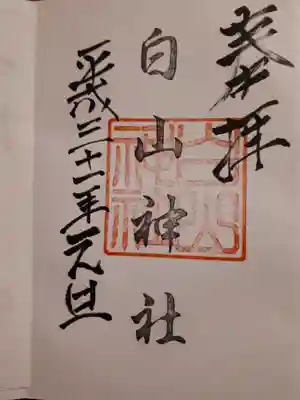 奉拝
白山神社
平成三十一年元旦
白山神社